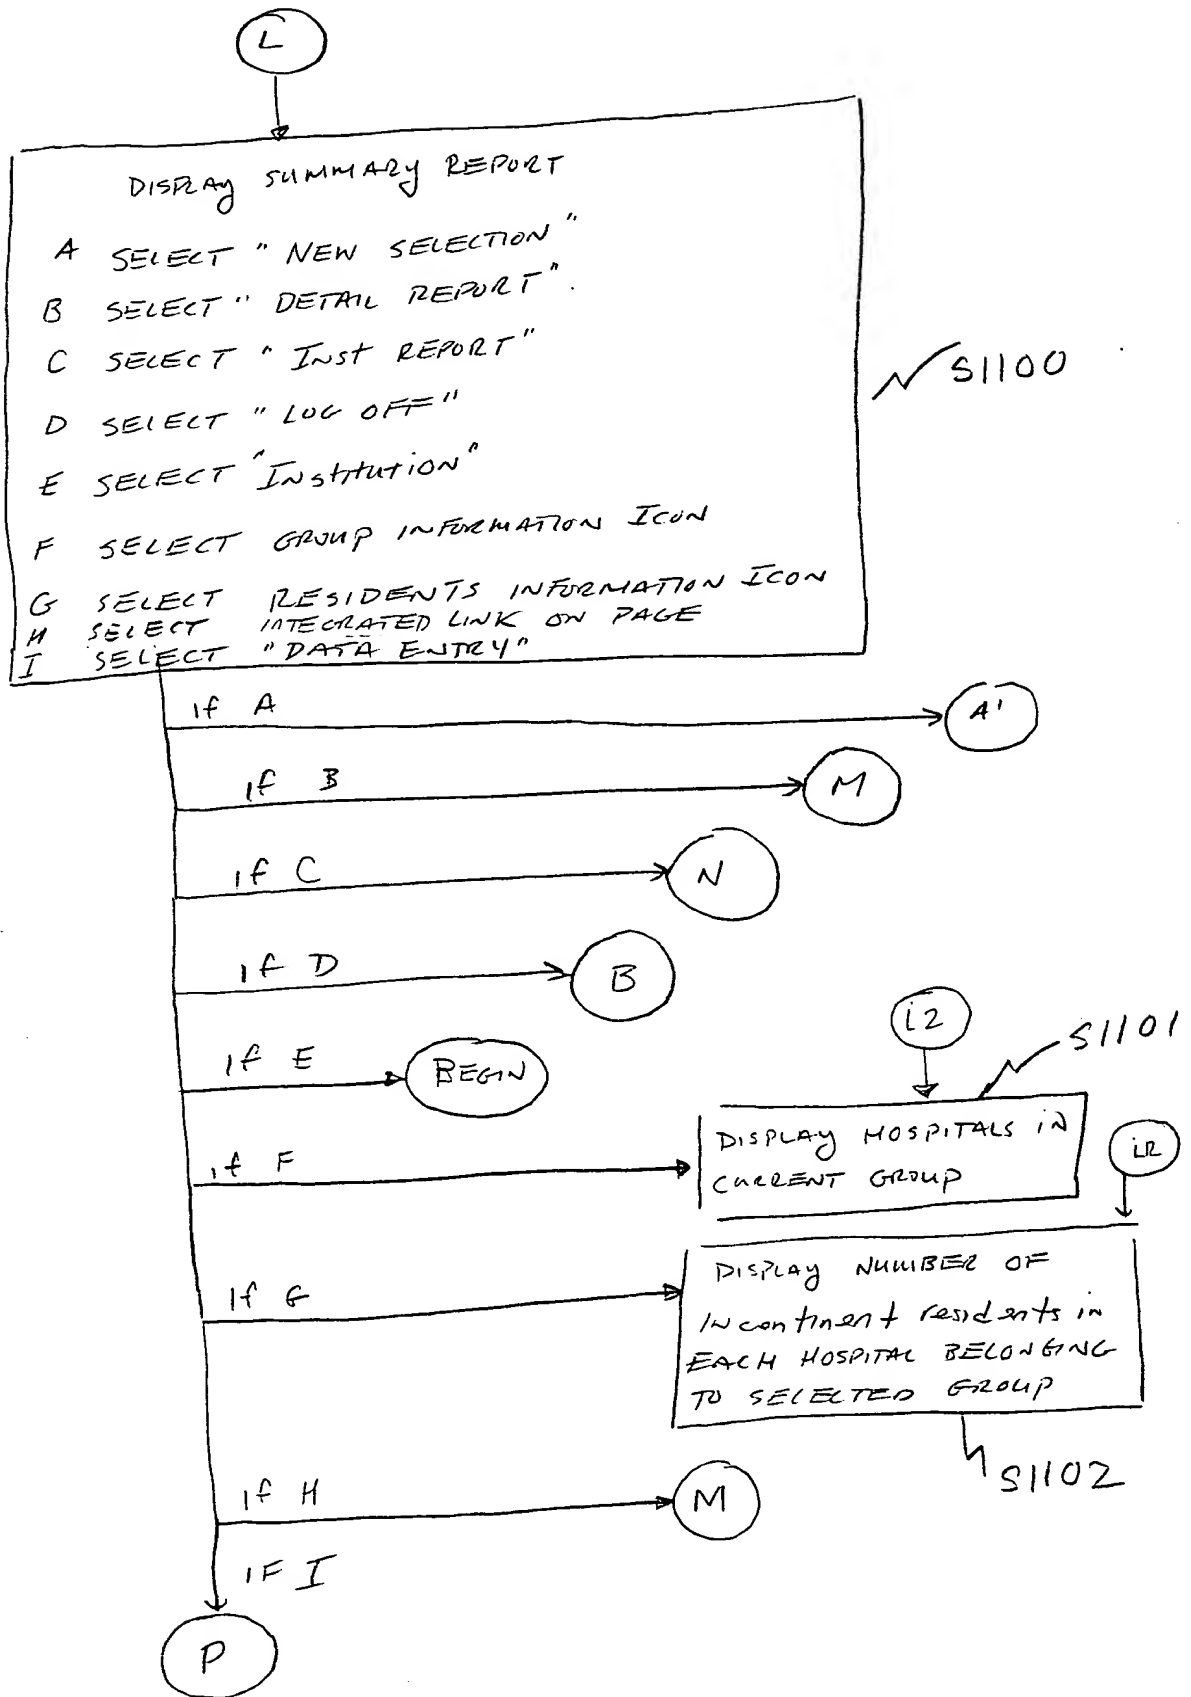 L
DISPLAY SUMMARY REPORT
A SELECT "NEW SELECTION"
B SELECT "DETAIL REPORT".
C SELECT "INST REPORT"
D SELECT "LOG OFF"
E SELECT "INSTITUTION"
F SELECT GROUP INFORMATION ICON
G SELECT RESIDENTS INFORMATION ICON
H SELECT INTEGRATED LINK ON PAGE
I SELECT "DATA ENTRY"
S1100
if A
A'
if B
M
if C
N
if D
B
i2
S1101
if E
BEGIN
if F
DISPLAY HOSPITALS IN
CURRENT GROUP
if G
DISPLAY NUMBER OF
Incontinent residents in
EACH HOSPITAL BELONGING
TO SELECTED GROUP
S1102
if H
M
IF I
P